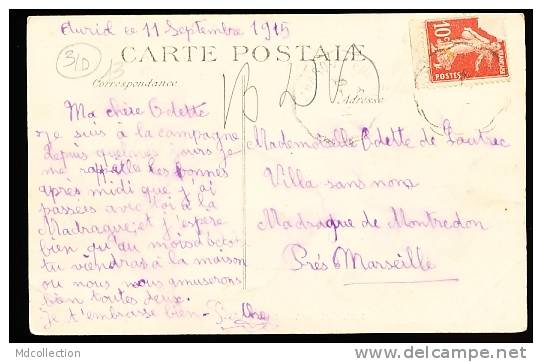 Auriol ce 11 Septembre 1915
CARTE POSTALE
3/D
13
Correspondance
Adresse
10c
POSTES
Ma chère Odette
je suis à la campagne
depuis quelques jours je
me rappelle les bonnes
après midi que j'ai
passées avec toi à la
Madrague, et j'espère
bien qu'au mois d'oct
tu viendras à la maison
ou nous nous amuserons
bien toutes deux.
Je t'embrasse bien -
Mademoiselle Odette de Lautrec
Villa sans nom
Madrague de Montredon
Près Marseille
Mdcollection
www.delcampe.net